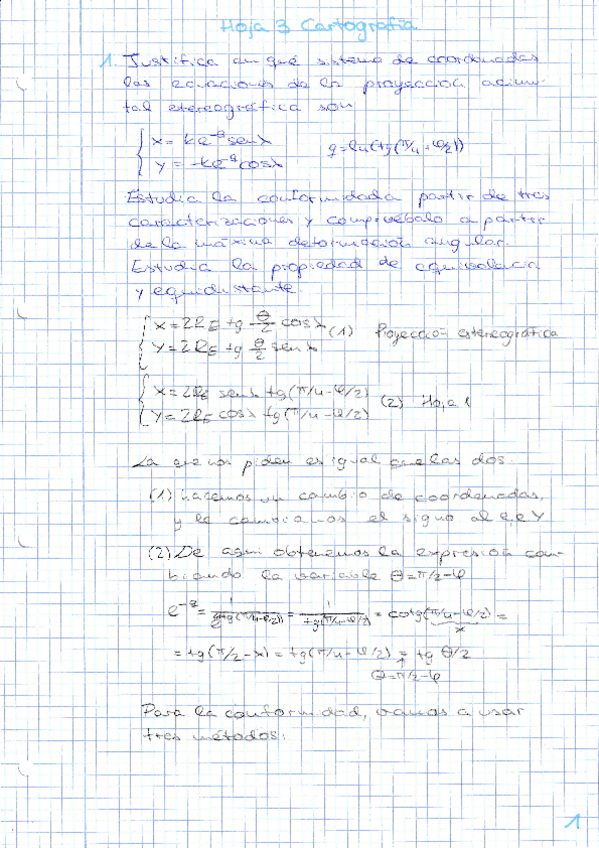 Hoja 3 Cartografía
1. Justifica en qué sistema de coordenadas
las ecuaciones de la proyección acimu-
tal estereográfica son
x = ke^-q senλ    q = ln(tg(π/4 + φ/2))
y = -ke^-q cosλ
Estudia la conformidad a partir de tres
caracterizaciones y compruébalo a partir
de la máxima deformación angular.
Estudia la propiedad de equivalencia
y equidistante.
x = 2R_E tg θ/2 cosλ (1) Proyección estereográfica
y = 2R_E tg θ/2 senλ
x = 2R_E senλ tg(π/4 - φ/2) (2) Hoja 1
y = 2R_E cosλ tg(π/4 - φ/2)
La que nos piden es igual que las dos.
(1) hacemos un cambio de coordenadas,
y le cambiamos el signo al eje Y
(2) De aquí obtenemos la expresión cam-
biando la variable θ = π/2 - φ
= cotg(π/4 + φ/2) =
= tg(π/2 - x) = tg(π/4 - φ/2) = tg θ/2
θ = π/2 - φ
Para la conformidad, vamos a usar
tres métodos:
1